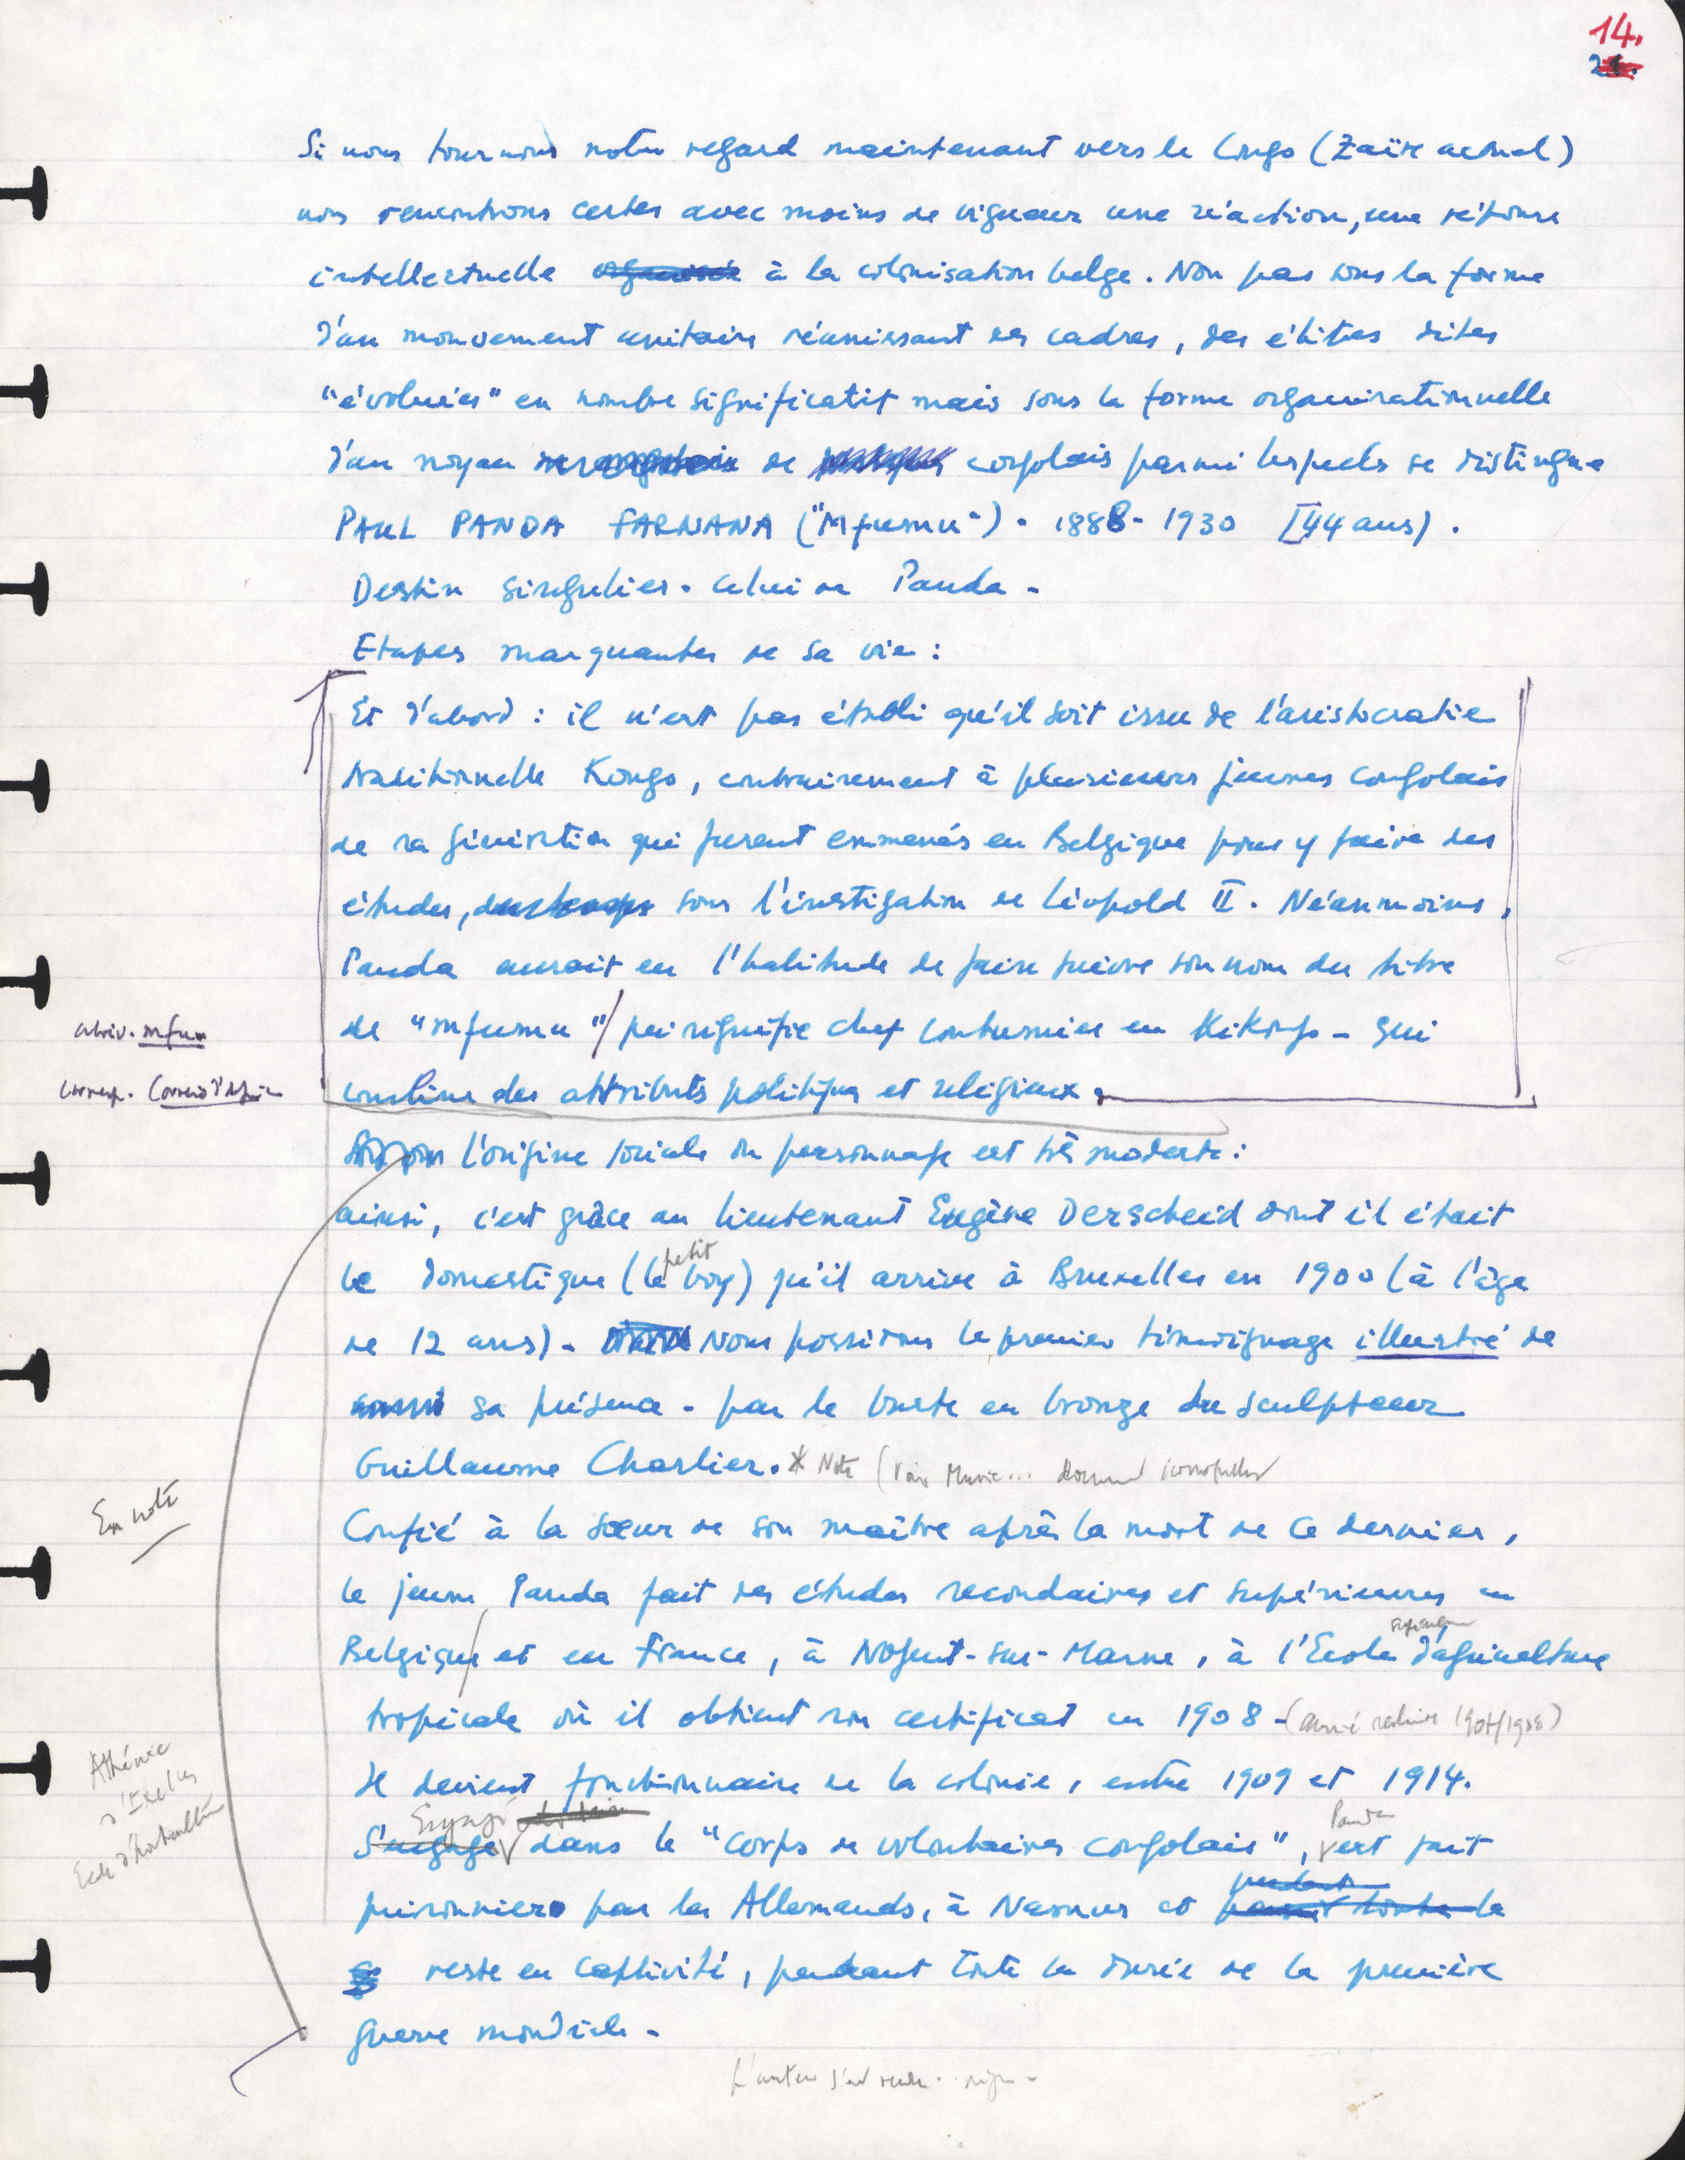 14.
21.
Si nous tournons notre regard maintenant vers le Congo (Zaïre actuel)
nous rencontrons certes avec moins de vigueur une réaction, une réponse
intellectuelle organisée à la colonisation belge. Non pas sous la forme
d'un mouvement unitaire réunissant des cadres, des élites dites
"évoluées" en nombre significatif mais sous la forme organisationnelle
d'un noyau de congolais parmi lesquels se distingue
PAUL PANDA FARNANA ("Mfumu") - 1888 - 1930 [44 ans).
Destin singulier - celui de Panda -
Etapes marquantes de sa vie :
Et d'abord : il n'est pas établi qu'il soit issu de l'aristocratie
traditionnelle Kongo, contrairement à plusieurs jeunes congolais
de sa génération qui furent emmenés en Belgique pour y faire des
études, sous l'instigation de Léopold II. Néanmoins,
Panda aurait eu l'habitude de faire suivre son nom du titre
de "mfumu" / qui signifie chef coutumier en KiKongo - qui
abrév. mfu
combine des attributs politiques et religieux.
corresp. Courrier d'Afrique
l'origine sociale du personnage est très modeste :
ainsi, c'est grâce au lieutenant Eugène Derscheid dont il était
le domestique (le petit boy) qu'il arrive à Bruxelles en 1900 (à l'âge
de 12 ans) - Nous possédons le premier témoignage illustré de
sa présence - par le buste en bronze du sculpteur
Guillaume Charlier. * Note (Voir Musée...
En note
Confié à la sœur de son maître après la mort de ce dernier,
le jeune Panda fait des études secondaires et supérieures en
Belgique / et en France, à Nogent-sur-Marne, à l'Ecole supérieure d'agriculture
tropicale où il obtient son certificat en 1908 - (année scolaire 1907/1908)
Athénée
d'Ixelles
Ecole d'horticulture
Il devient fonctionnaire de la colonie, entre 1909 et 1914.
S'engage Engagé dans le "Corps de volontaires congolais", Panda est fait
prisonnier par les Allemands, à Namur et pendant passait toute la
reste en captivité, pendant toute la durée de la première
guerre mondiale -